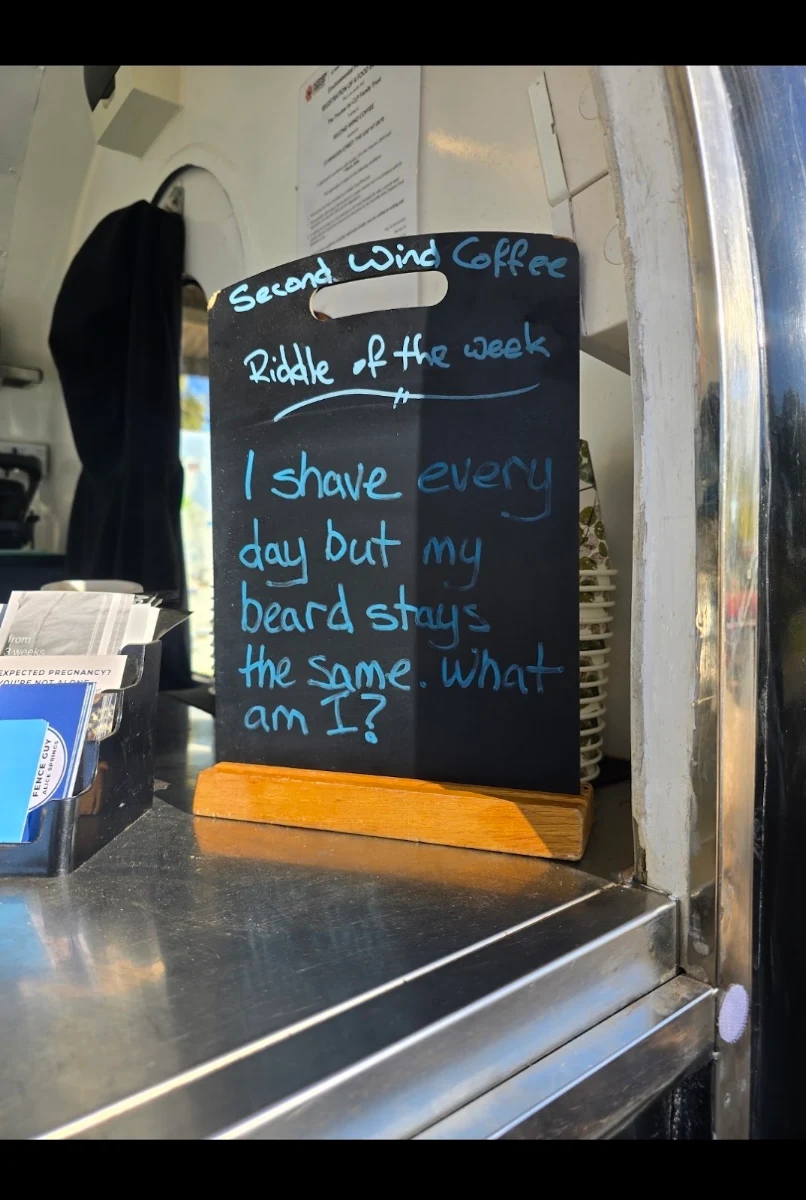 REGISTRATION OF A FOOD
SECOND WIND COFFEE
Second Wind Coffee
Riddle of the week
I shave every
day but my
beard stays
the same. What
am I?
from
3 weeks
EXPECTED PREGNANCY?
YOU'RE NOT ALONE
FENCE GUY
ALICE SPRINGS